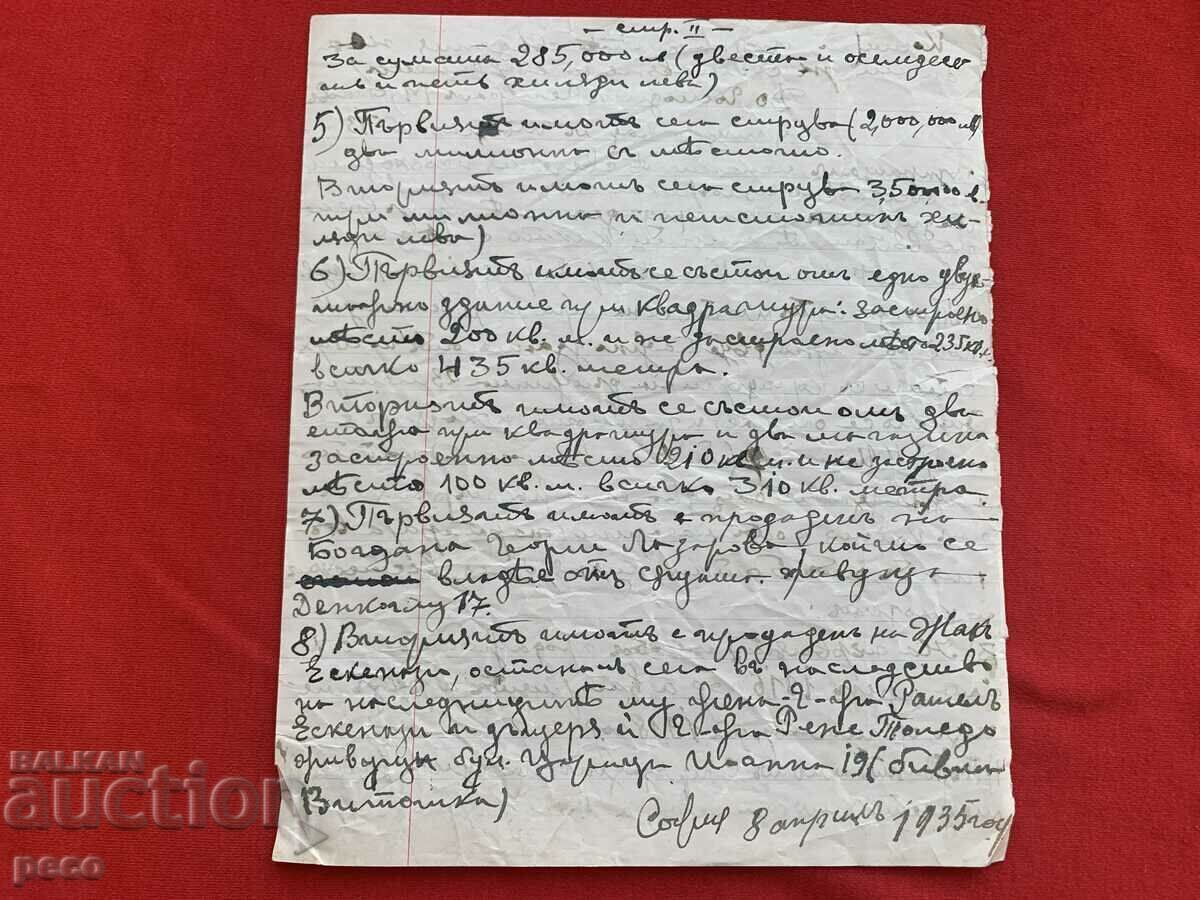 — стр. II —
За сумата 285,000 лв (двеста и осемдесе
ть и петь хиляди лева)
5) Първиятъ имотъ сега струва (2,000,000 лв)
два милиона съ мѣстото.
Вториятъ имотъ сега струва 3,500000 л.
три милиона и петстотинъ хи-
ляди лева)
6) Първиятъ имотъ се състои отъ едно двуе-
тажно здание при квадратура: застроено
мѣсто 200 кв. м. и не застроено мѣсто 235 кв.
всичко 435 кв. метра.
Вториятъ имотъ се състои отъ два
етажа при квадратура и два магазина
застроенно мѣсто 210 кв. м. и не застроено
мѣсто 100 кв. м. всичко 310 кв. метра.
7) Първиятъ имотъ е продаденъ на
Богдана Георги Лазарова, който се
владѣе отъ живуща
Денкоглу 17.
8) Вториятъ имотъ е продаденъ на Жак
Ескенази, останалъ сега въ наследство
на наследницитѣ му жена - Г-жа Рашелъ
Ескенази и дъщеря ѝ Г-жа Рене Толедо
живущи бул. Царица Иоанна 19 (бивша
Витошка)
София 8 априлъ 1935 год
BALKAN
auction
peco